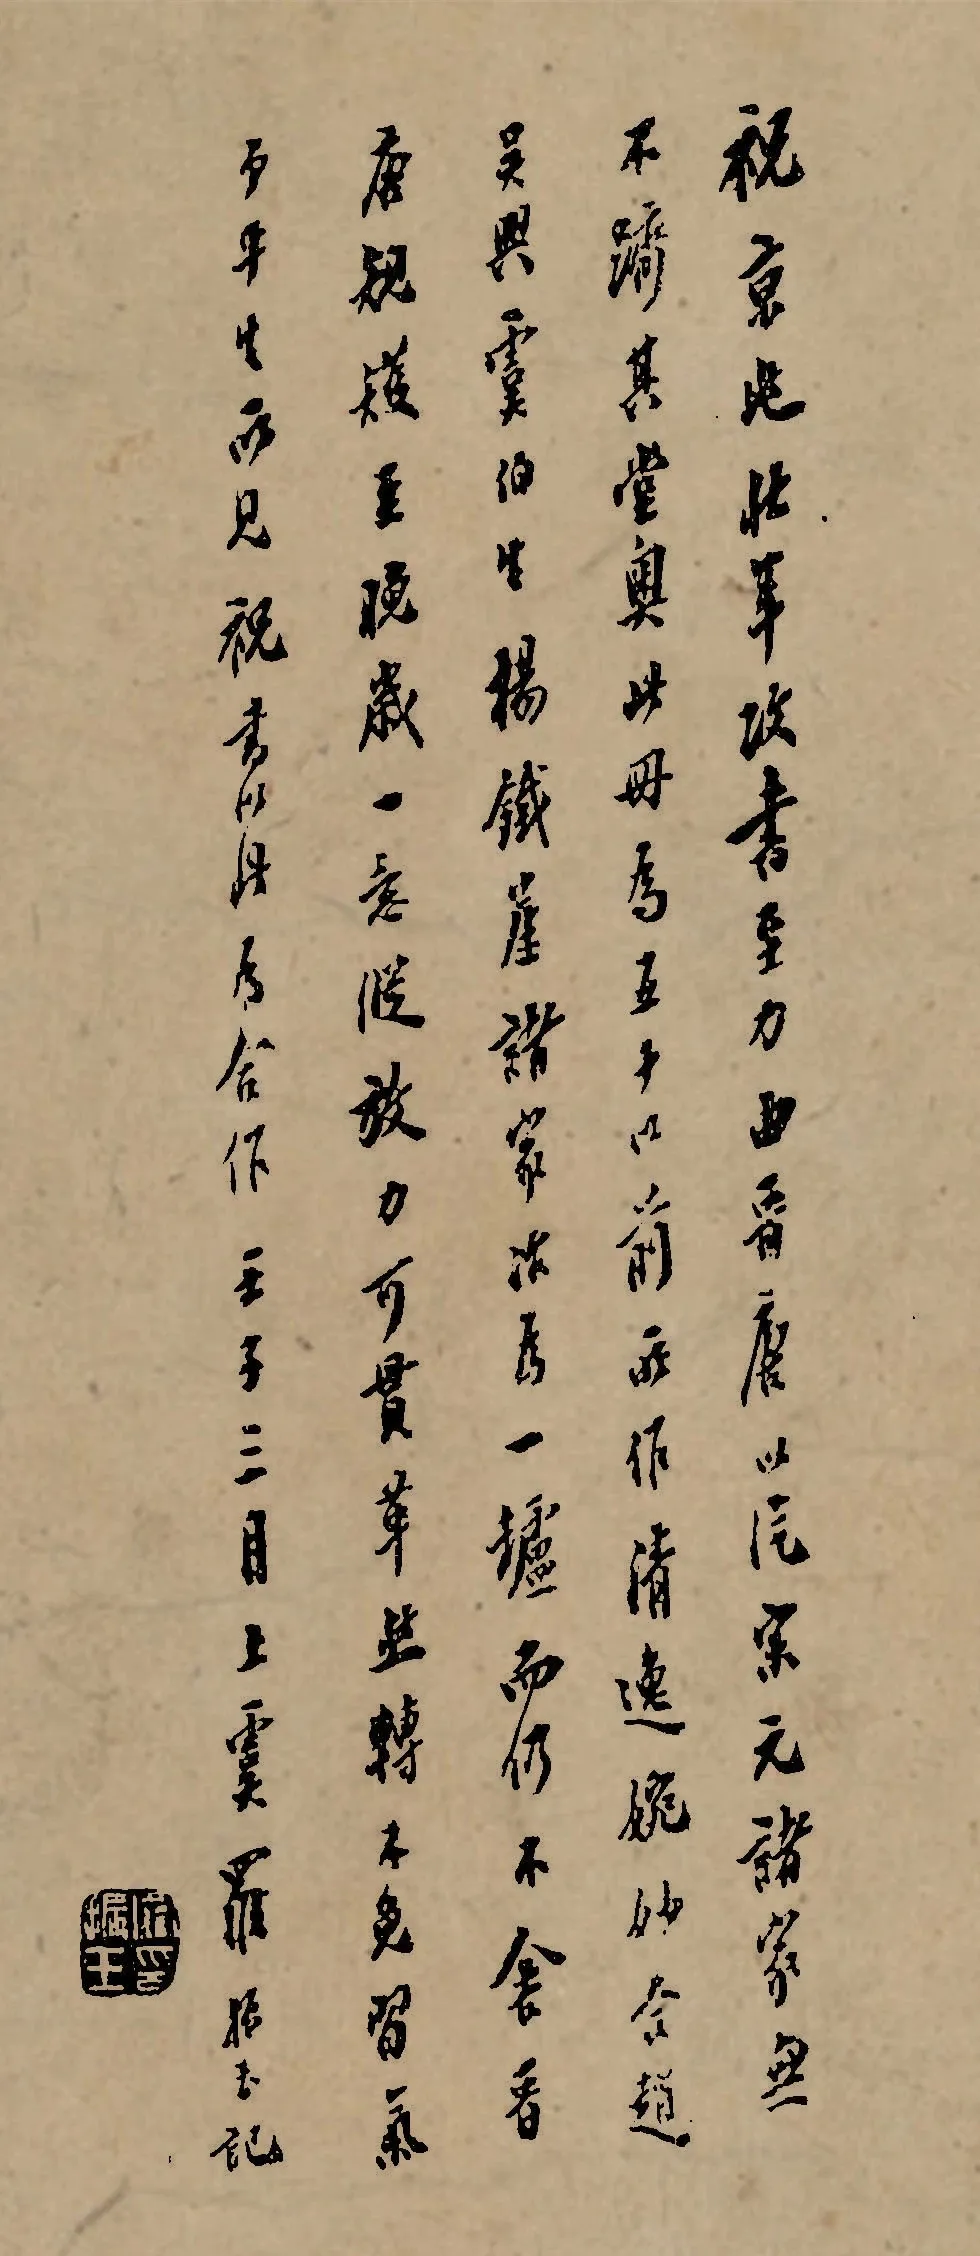 祝京兆壯年攻書至力由晉唐以汔宋元諸家無
不躋其堂奧此冊為五十以前所作清逸婉妙合趙
吳興虞伯生楊鐵崖諸家冶為一壚而仍不舍晉
唐規矱至晚歲一意縱放力可貫革然轉不免習氣
予平生所見祝書以此為合作壬子三月上虞羅振玉記